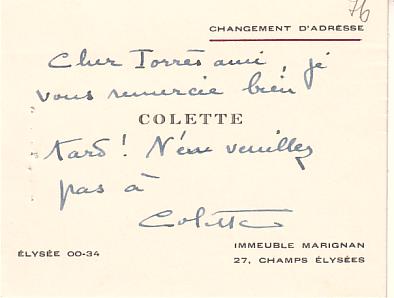 76
CHANGEMENT D'ADRESSE
Cher Torrès ami, je
vous remercie bien
COLETTE
tard ! N'en veuillez
pas à
Colette
ÉLYSÉE 00-34
IMMEUBLE MARIGNAN
27, CHAMPS ÉLYSÉES